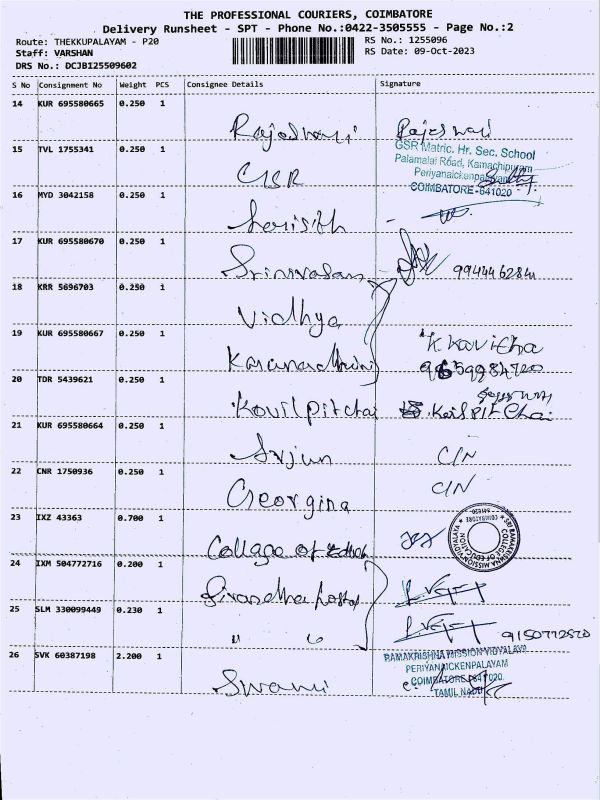 THE PROFESSIONAL COURIERS, COIMBATORE
Delivery Runsheet - SPT - Phone No.:0422-3505555 - Page No.:2
Route: THEKKUPALAYAM - P20
RS No.: 1255096
Staff: VARSHAN
RS Date: 09-Oct-2023
DRS No.: DCJBI25509602
S No Consignment No Weight PCS Consignee Details Signature
14 KUR 695580665 0.250 1 Rajeshwari Rajeswari
15 TVL 1755341 0.250 1 GSR
GSR Matric. Hr. Sec. School
Palamalai Road, Kamachipuram
Periyanaickenpalayam
COIMBATORE-641020
16 MYD 3042158 0.250 1 Harish
17 KUR 695580670 0.250 1 Srinivasan
18 KRR 5696703 0.250 1 Vidhya
19 KUR 695580667 0.250 1 K. Kavitha
20 TDR 5439621 0.250 1 Kovilpitchai
21 KUR 695580664 0.250 1 Arjun C/N
22 CNR 1750936 0.250 1 Georgina C/N
23 IXZ 43363 0.700 1 College of
SRI RAMAKRISHNA MISSION VIDYALAYA
COLLEGE OF EDUCATION
COIMBATORE
24 IXM 504772716 0.200 1
25 SLM 330099449 0.230 1 " "
26 SVK 60387198 2.200 1 Swami
RAMAKRISHNA MISSION VIDYALAYA
PERIYANAICKENPALAYAM
COIMBATORE-641 020
TAMIL NADU